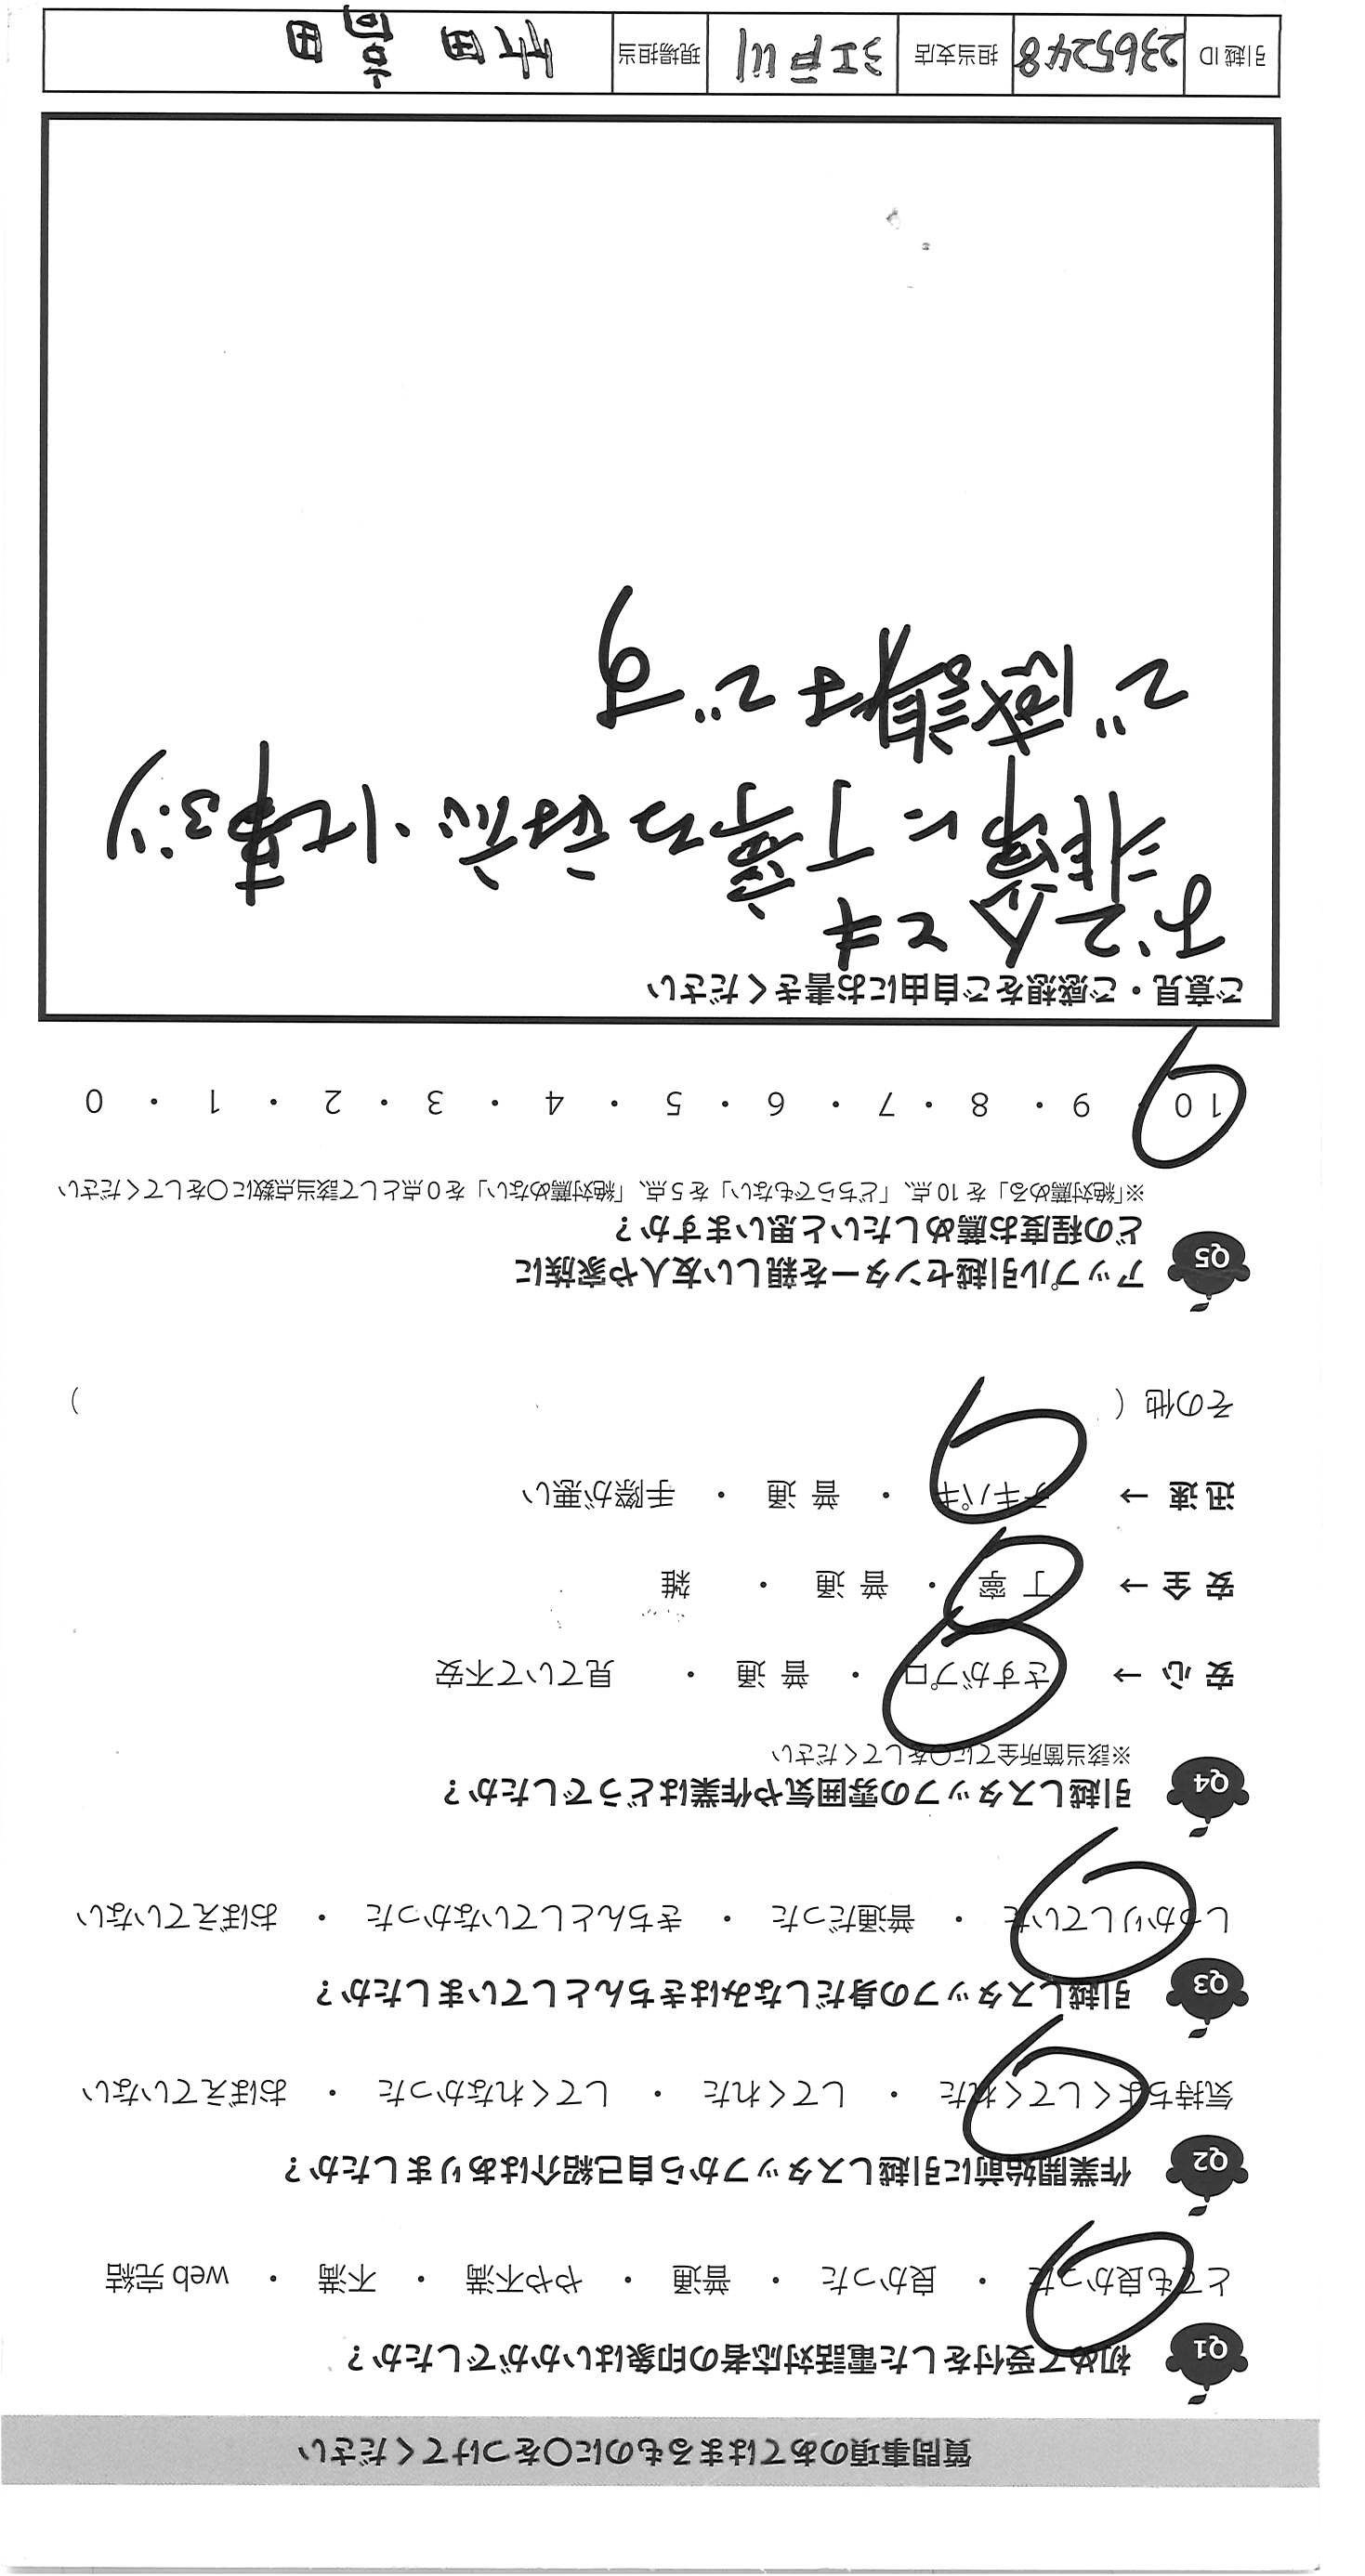 質問事項のあてはまるものに〇をつけてください
Q1 初めて受付をした電話対応者の印象はいかがでしたか？
とても良かった ・ 良かった ・ 普通 ・ やや不満 ・ 不満 ・ web完結
Q2 作業開始前に引越しスタッフから自己紹介はありましたか？
気持ちよくしてくれた ・ してくれた ・ してくれなかった ・ おぼえていない
Q3 引越しスタッフの身だしなみはきちんとしていましたか？
しっかりしていた ・ 普通だった ・ きちんとしていなかった ・ おぼえていない
Q4 引越しスタッフの雰囲気や作業はどうでしたか？
※該当箇所全てに〇をしてください
安心 → さすがプロ ・ 普通 ・ 見ていて不安
安全 → 丁寧 ・ 普通 ・ 雑
迅速 → テキパキ ・ 普通 ・ 手際が悪い
その他（ ）
Q5 アップル引越センターを親しい友人や家族に
どの程度お薦めしたいと思いますか？
※「絶対薦める」を10点、「どちらでもない」を5点、「絶対薦めない」を0点として該当点数に〇をしてください
10 ・ 9 ・ 8 ・ 7 ・ 6 ・ 5 ・ 4 ・ 3 ・ 2 ・ 1 ・ 0
ご意見・ご感想をご自由にお書きください
お2人とも
非常に丁寧な対応・仕事ぶり
で感謝です
引越ID 2365248 担当支店 江戸川 現場担当 竹田 高田